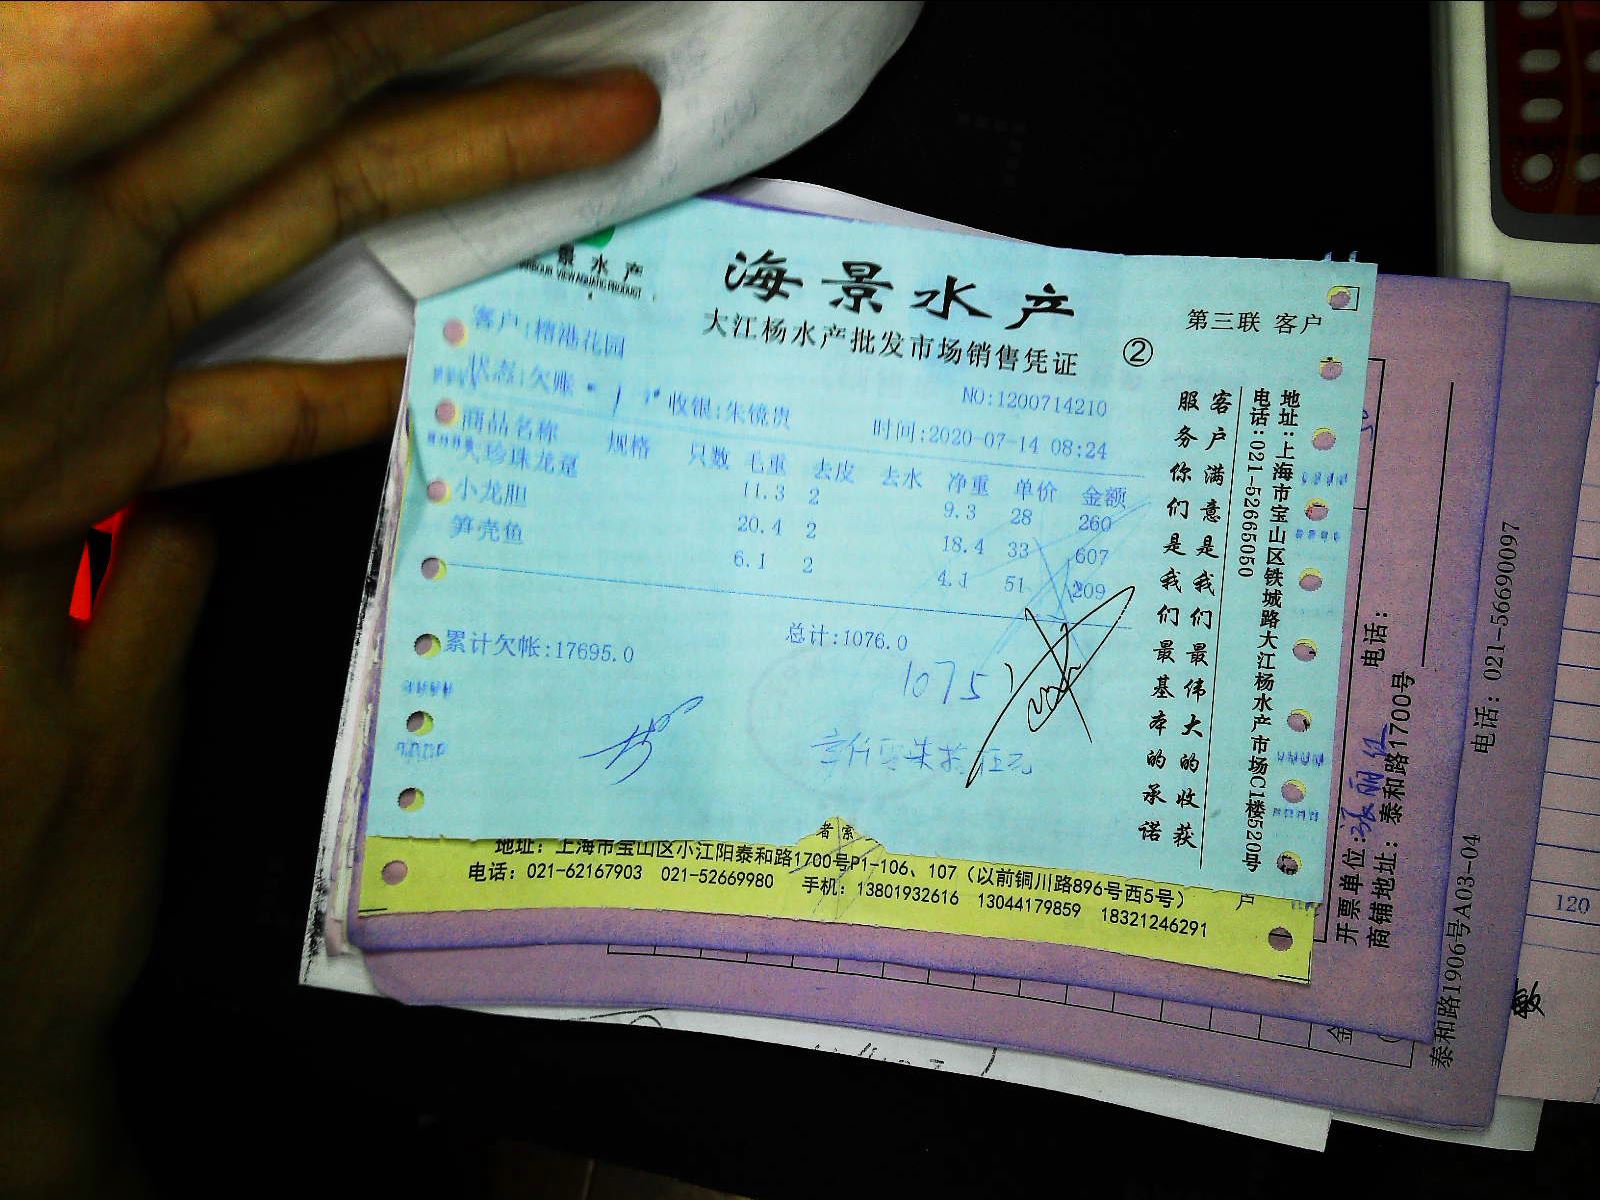 景水产
VIEW AQUATIC PRODUCT
海景水产
大江杨水产批发市场销售凭证
②
第三联 客户
客户:精港花园
状态:欠账
收银:朱镜贵
NO:1200714210
时间:2020-07-14 08:24
商品名称 规格 只数 毛重 去皮 去水 净重 单价 金额
大珍珠龙趸 11.3 2 9.3 28 260
小龙胆 20.4 2 18.4 33 607
笋壳鱼 6.1 2 4.1 51 209
累计欠帐:17695.0
总计:1076.0
1075
壹仟零柒拾伍元
客户满意是我们最伟大的收获
服务你们是我们最基本的承诺
地址:上海市宝山区铁城路大江杨水产市场C1楼520号
电话:021-52665050
地址:上海市宝山区小江阳泰和路1700号P1-106、107(以前铜川路896号西5号)
电话:021-62167903 021-52669980 手机:13801932616 13044179859 18321246291
户
开票单位:
电话:
商铺地址:泰和路1700号
泰和路1906号A03-04
电话:021-56690097
金
120